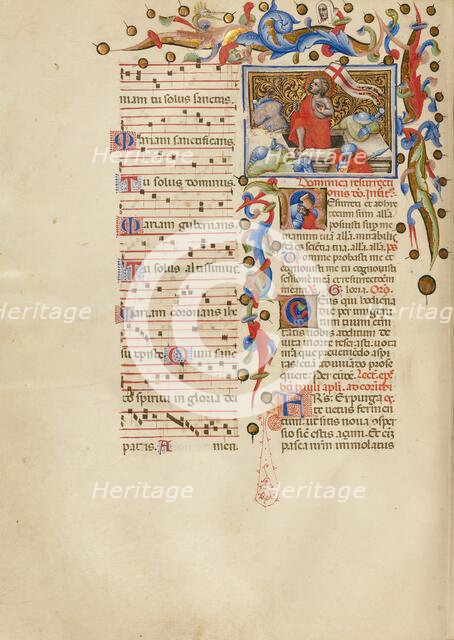 mam tu solus sanctus.
Mariam sanctificans.
Tu solus dominus.
Mariam gubernans.
Tu solus altissimus.
Mariam coronans ihe
su xpiste. Cum sanc
to spiritu in gloria dei
patris. A men.
Dominica resurrecti
onis do. Intr.
Resurrexi et adhuc
tecum sum alla.
posuisti sup me
manum tua alla. mirabilis
cta e scientia tua alla. alla. ps
Domine probasti me et
cognouisti me tu cognouisti
sessione mea et resurrectionem
meam. V. Gloria. Oro
Deus qui hodierna
die per unigeni
tum tuum eterni
tatis nobis aditum de
uicta morte reserasti uo
ta nostra que preueniendo aspi
ras etiam adiuuando prose
quere. Per eundem. Lect. epl.
bti pauli apli. ad corinth
FRS. Expurgate
uetus fermen
tum. ut sitis noua consper
sio sicut estis açimi. Et ei
pasca nrm immolatus
Heritage
Heritage
Heritage
Heritage
Heritage
Heritage
Heritage
Heritage